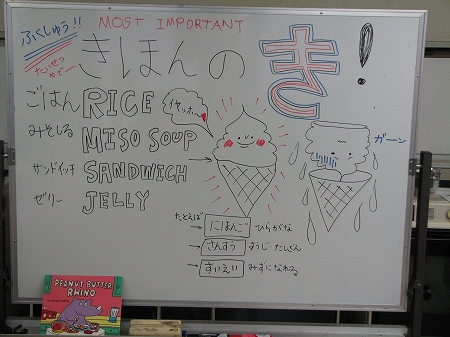 ふくしゅう!!
MOST IMPORTANT
たいせつ
やでー
きほんの き!
ごはん RICE
イヤッホー
みそしる MISO SOUP
ガーン
サンドイッチ SANDWICH
ゼリー JELLY
たとえば
→ にほんご ひらがな
→ さんすう すうじ・たしざん
→ すいえい みずになれる
PEANUT BUTTER
RHINO